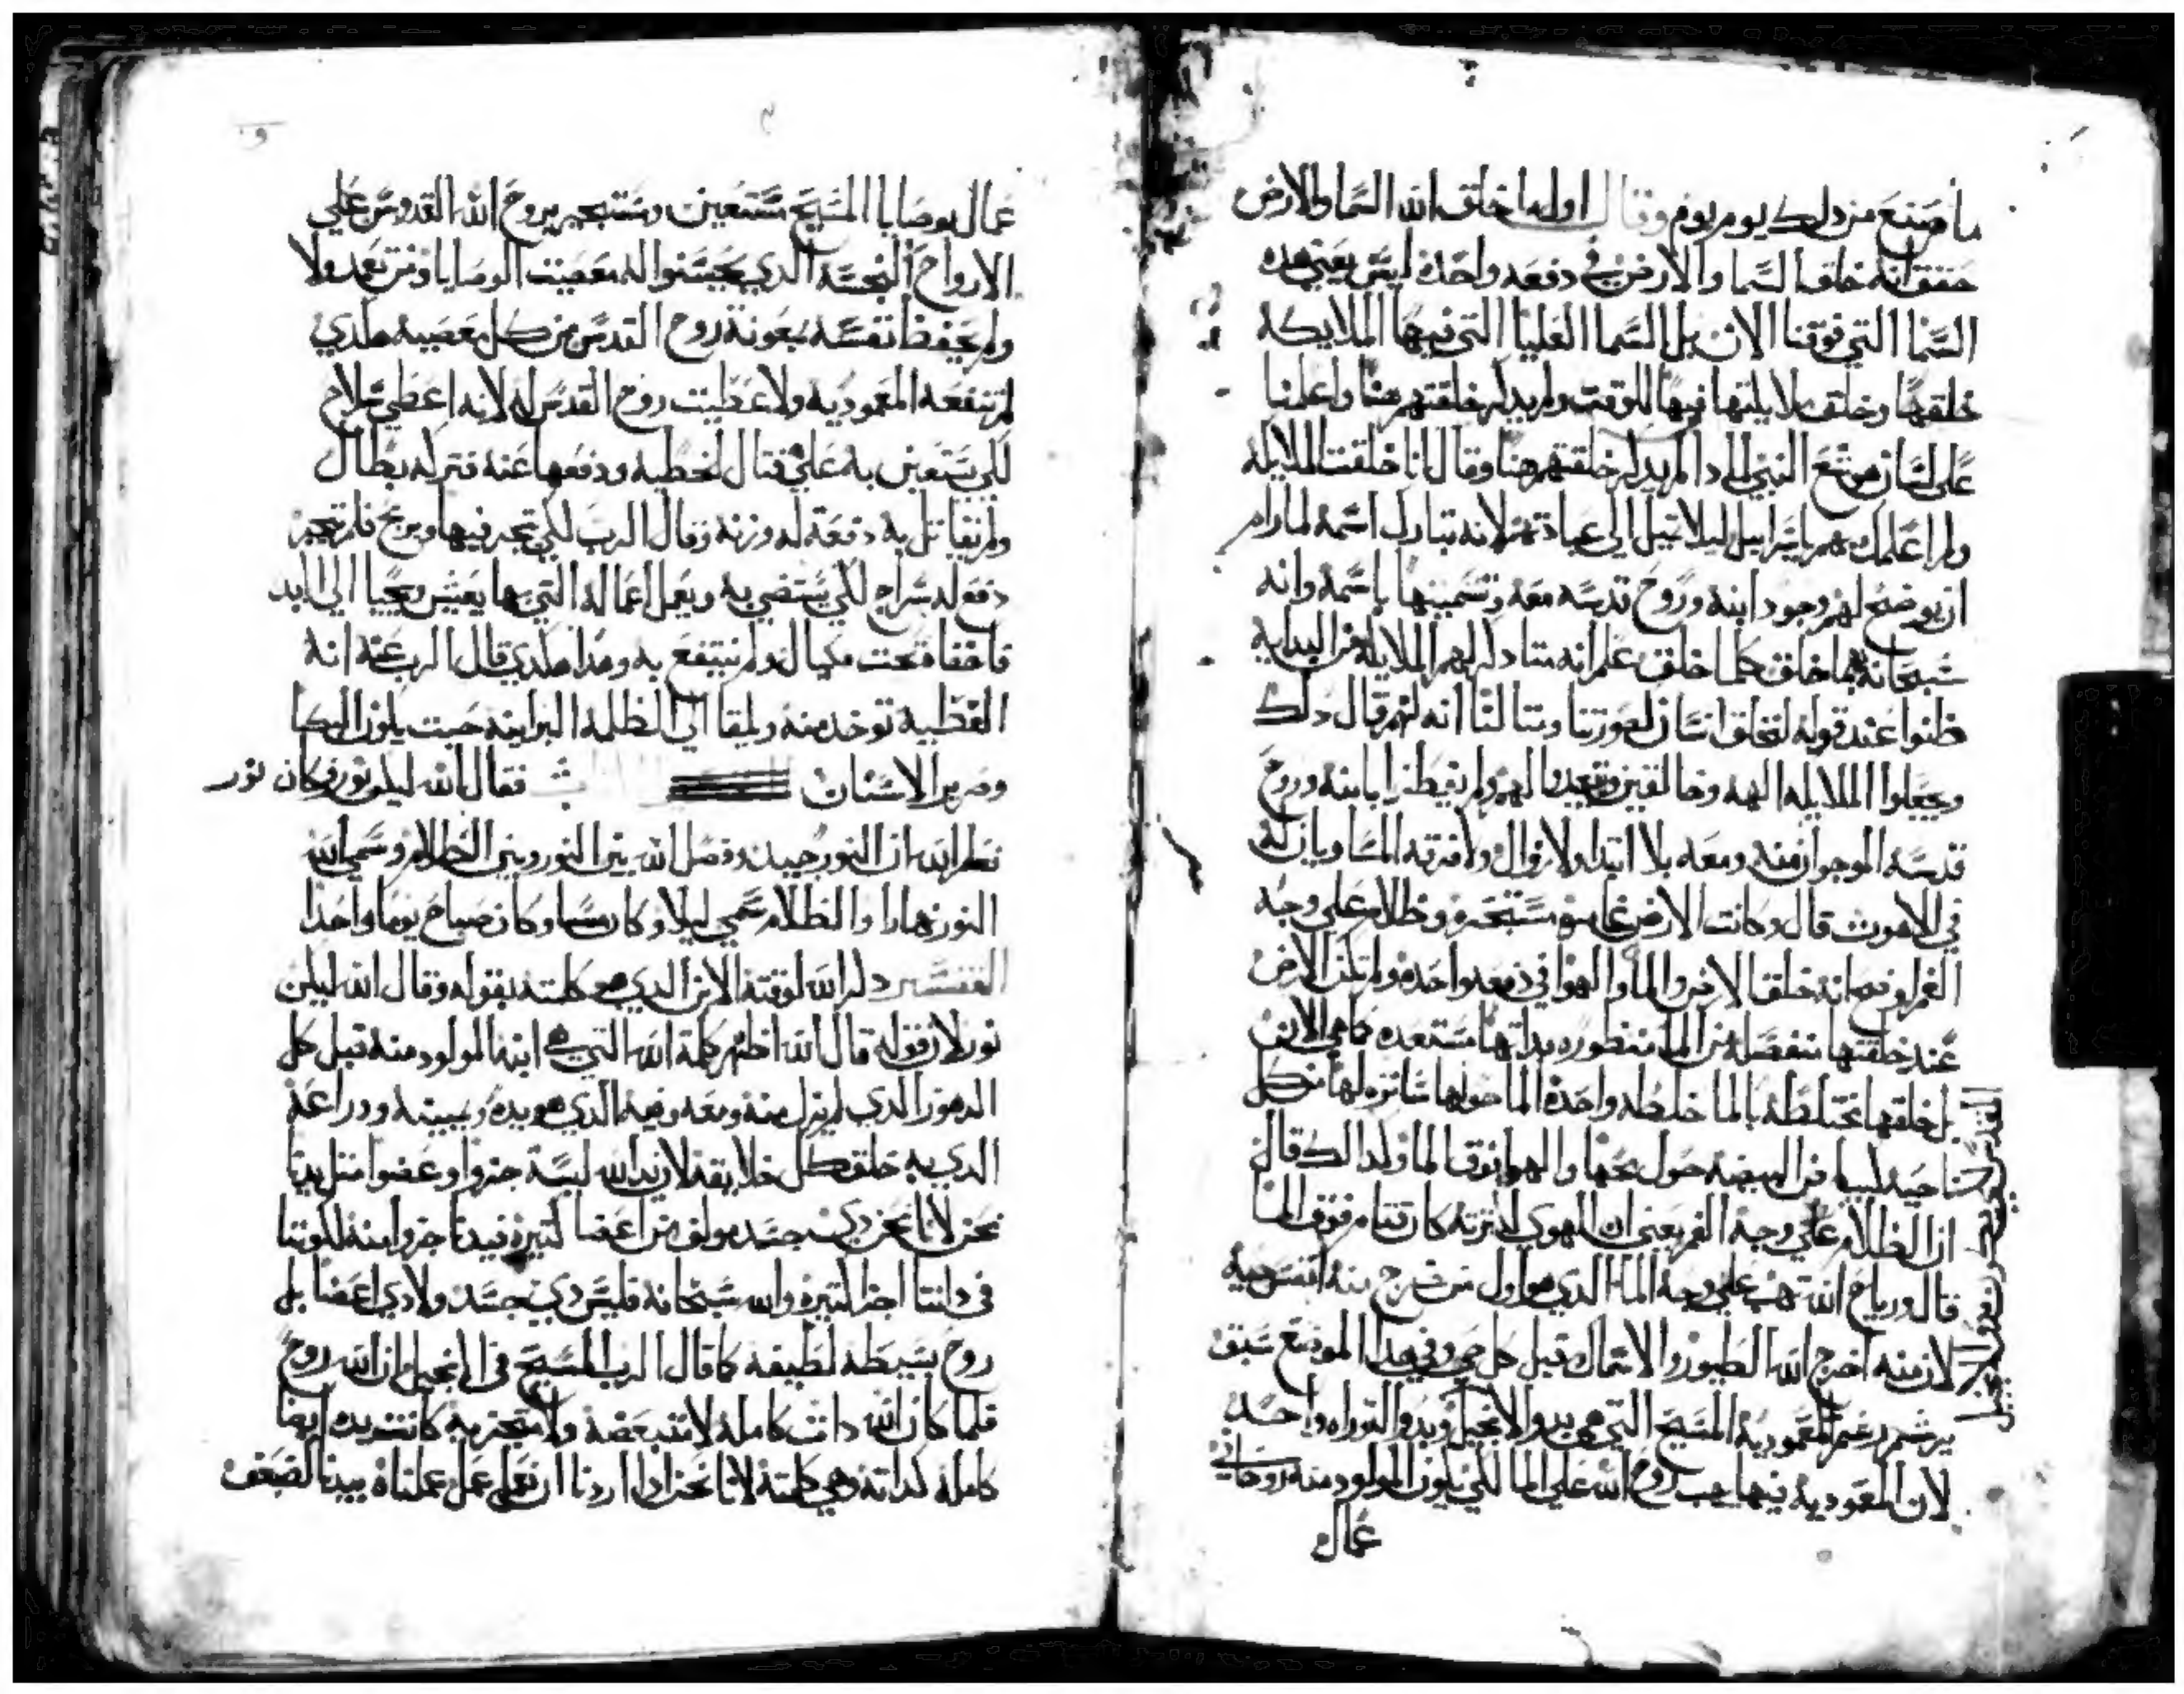 ما صنع من ذلك يوم بيوم وقال اول ما خلق الله السما والارض
حقق انه خلق السما والارض في دفعه واحده ليس يعني هده
السما التي فوقنا الان بل السما العليا التي فيها الملايكه
خلقها وخلق ملايكتها فيها للوقت ولم يدكر خلقتهم هنا واعلنا
على لسان النبي لمادا لم يدكر خلقتهم هنا وقال انا خلقت الملايكه
ولم اعلمك بهم ياسراييل ليلا تميل الي عبادتهم لانه تبارك اسمه لما رام
ان يوضح لهم وجود ابنه وروح قدسه معه وتسميتها باسمه وانه
سبحانه بهما خلق كلما خلق علم انه متا دكر لهم الملايكه من البدايه
ظنوا عند قوله لنخلق انسان لصورتنا ومثالنا انه لهم قال دلك
ويجعلوا الملايكه الهه وخالقين ويتعبدوا لهم ولم يفطنوا بابنه وروح
قدسه الموجوان منه ومعه بلا ابتدا ولا زوال ولا فرقه المساويان له
في اللاهوت قال وكانت الارض غامره مستبحره وظلام على وجه
الغمر اوضح انه خلق الارض والما والهوا في دفعه واحده ولم تكن الارض
عند خلقتها منفصله من الما منظوره بداتها مستعده كما هي الان
بل خلقها مختلطه بالما خلطه واحده الما حولها ساتره لها من كل
ناحيه البيضه حول محها والهوا فوق الما ولدالك قال
ان الظلام علي وجه الغمر يعني ان الهوي لكترته كان قتام فوق الما
قال ورياح الله تهب على وجه الما الدي هو اول من خرج منه انفس حيه
لان منه اخرج الله الطيور والاسماك قبل كل حي وفي هدا الموضع سبق
يرشم رشم المعموديه المسيح التي هي بدو الانجيل وبدو التوراه واحد
لان المعموديه فيها يهب روح الله على الما لكي يكون المولود منه روحاني
عمال
عمال بوصايا المسيح مستعين ومستجير بروح الله القدوس على
الارواح النجسه الدي يحيتنوا له معصيت الوصايا ومن تعمد ولا
ولم يحفظ نفسه بمعونة روح القدس من كل معصيه هلدي
لم تنفعه المعموديه ولا عطيت روح القدس له لانه اعطي سلاح
لكي يستعين به على قتال الخطيه ودفعها عنه فتركه بطال
ولم يقاتل به دفعة له وزنه وقال الرب لكي تجر فيها ويربح فلم تجر
دفع له سراج لكي يستضي به ويعمل اعماله التي بها يعيش ويحيا الي الابد
فاخفاه تحت مكيال ولم ينتفع به وهدا هلدي قال الرب عنه انه
العطيه توخد منه ويلقا الي الظلمه البرانيه حيت يكون البكا
وصرير الاسنان فقال الله ليكن نور فكان نور
نظر الله ان النور جيد وفصل الله بين النور وبين الظلام وسمي الله
النور نهارا والظلام سمي ليلا وكان مسا وكان صباح يوما واحدا
التفسير دكر الله لوقته الابن الدي هو كلمته بقوله وقال الله ليكن
نور لان قوله قال الله اظهر كلمة الله التي هي ابنه المولود منه قبل كل
الدهور الدي لم يزل منه ومعه وفيه الدي هو يده ويمينه ودراعه
الدي به خلق كل خلايقه لان يد الله ليسة جزوا وعضوا متل يدنا
نحن لانا نحن دي جسد مولف من اعضا كتيره فيدنا جزوا منه لكوننا
في داتنا اجزا كتيره والله سبحانه فليس دي جسد ولا دي اعضا بل
روح بسيطه لطيفه كما قال الرب المسيح في الانجيل وان الله روح
فلما كان الله دات كامله لا متبعضه ولا متجزيه كانت يده ايضا
كامله كداته وهي كلمته لانا نحن ادا اردنا ان نعمل عمل عملناه بيدنا لضعف